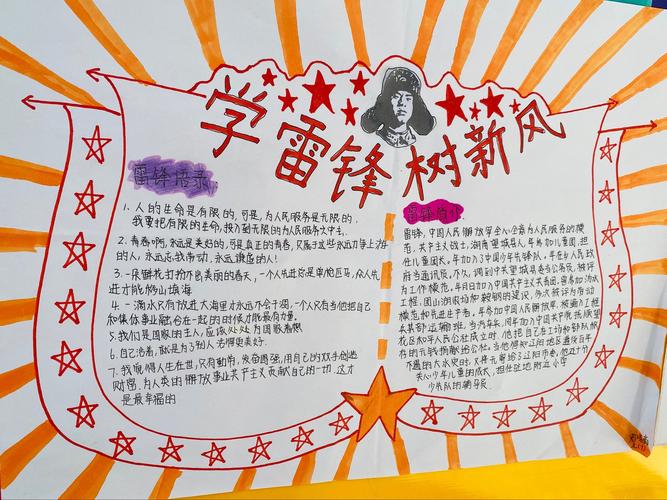 学雷锋树新风
雷锋语录
1、人的生命是有限的,可是,为人民服务是无限的,
我要把有限的生命,投入到无限的为人民服务之中去。
2、青春啊,永远是美好的,可是真正的青春,只属于这些永远力争上游
的人,永远忘我劳动,永远谦虚的人!
3、一朵鲜花打扮不出美丽的春天,一个人先进总是单枪匹马,众人先
进才能移山填海
4、一滴水只有放进大海里才永远不会干涸,一个人只有当他把自己
和集体事业融合在一起的时候才能最有力量。
5、我们是国家的主人,应该处处为国家着想
6、自己活着,就是为了别人 活得更美好.
7、我觉得人生在世,只有勤劳,发奋图强,用自己的双手创造
财富,为人类的解放事业共产主义贡献自己的一切,这才
是最幸福的
雷锋
雷锋,中国人民解放军全心全意为人民服务的模
范,共产主义战士,湖南望城县人,年参加儿童团,担
任儿童团长。年加入中国少年先锋队。年在乡人民政
府当通讯员。不久,调到中共望城县委当公务员,被评
为工作模范。年月日加入中国共产主义青年团。曾参加沩水
工程,团山湖农场和鞍钢的建设,多次被评为劳动
模范和先进生产者。年参加中国人民解放军,被编入工程
兵某部运输班,当汽车兵。同年加入中国共产党抚顺望
花区和平人民公社成立时,他把自己在工厂和部队积
存的元钱捐献给公社。当他得知辽阳地区遭受百年
不遇的大水灾时,又将元寄给了辽阳市委,他还十分
关心少年儿童的成长,担任驻地附近小学
少先队的辅导员